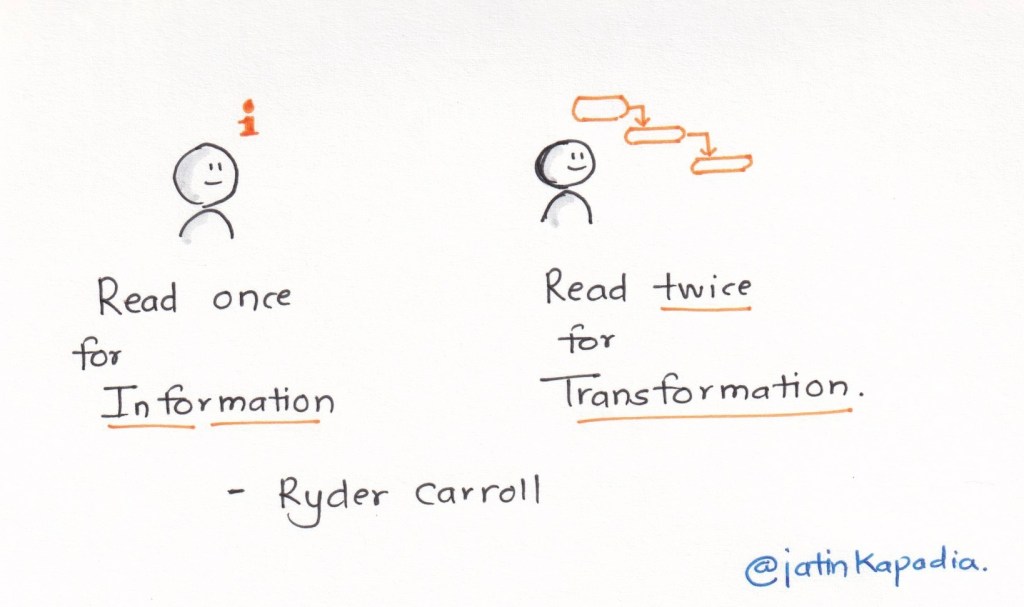 i
Read once
for
Information
Read twice
for
Transformation.
- Ryder Carroll
@jatinkapadia.